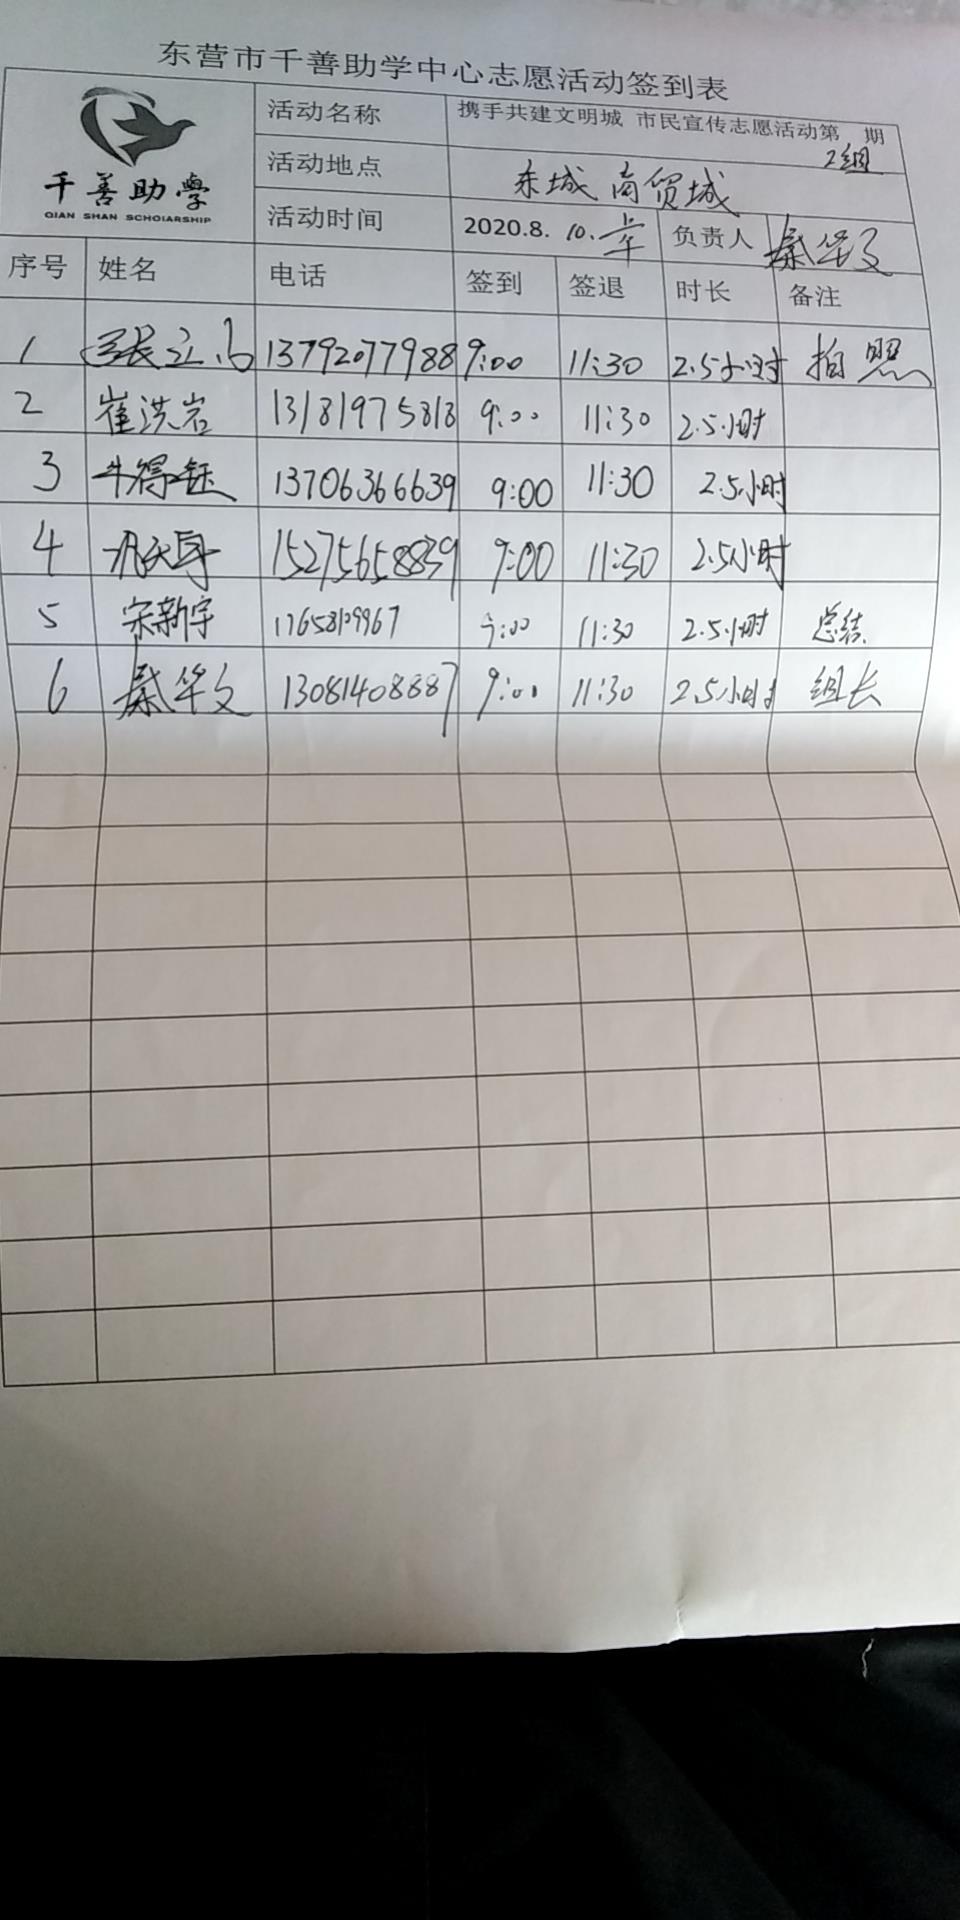 东营市千善助学中心志愿活动签到表
千善助學
QIAN SHAN SCHOIARSHIP
活动名称 携手共建文明城 市民宣传志愿活动第 期
2组
活动地点 东城商贸城
活动时间 2020.8. 10. 上午 负责人 秦华文
序号 姓名 电话 签到 签退 时长 备注
1 张立 13792077988 9:00 11:30 2.5小时 拍照
2 崔洪岩 13181975818 9:00 11:30 2.5小时
3 牛得钰 13706366639 9:00 11:30 2.5小时
4 15275658839 9:00 11:30 2.5小时
5 宋新宇 17658109967 9:00 11:30 2.5小时 总结
6 秦华文 13081408887 9:00 11:30 2.5小时 组长